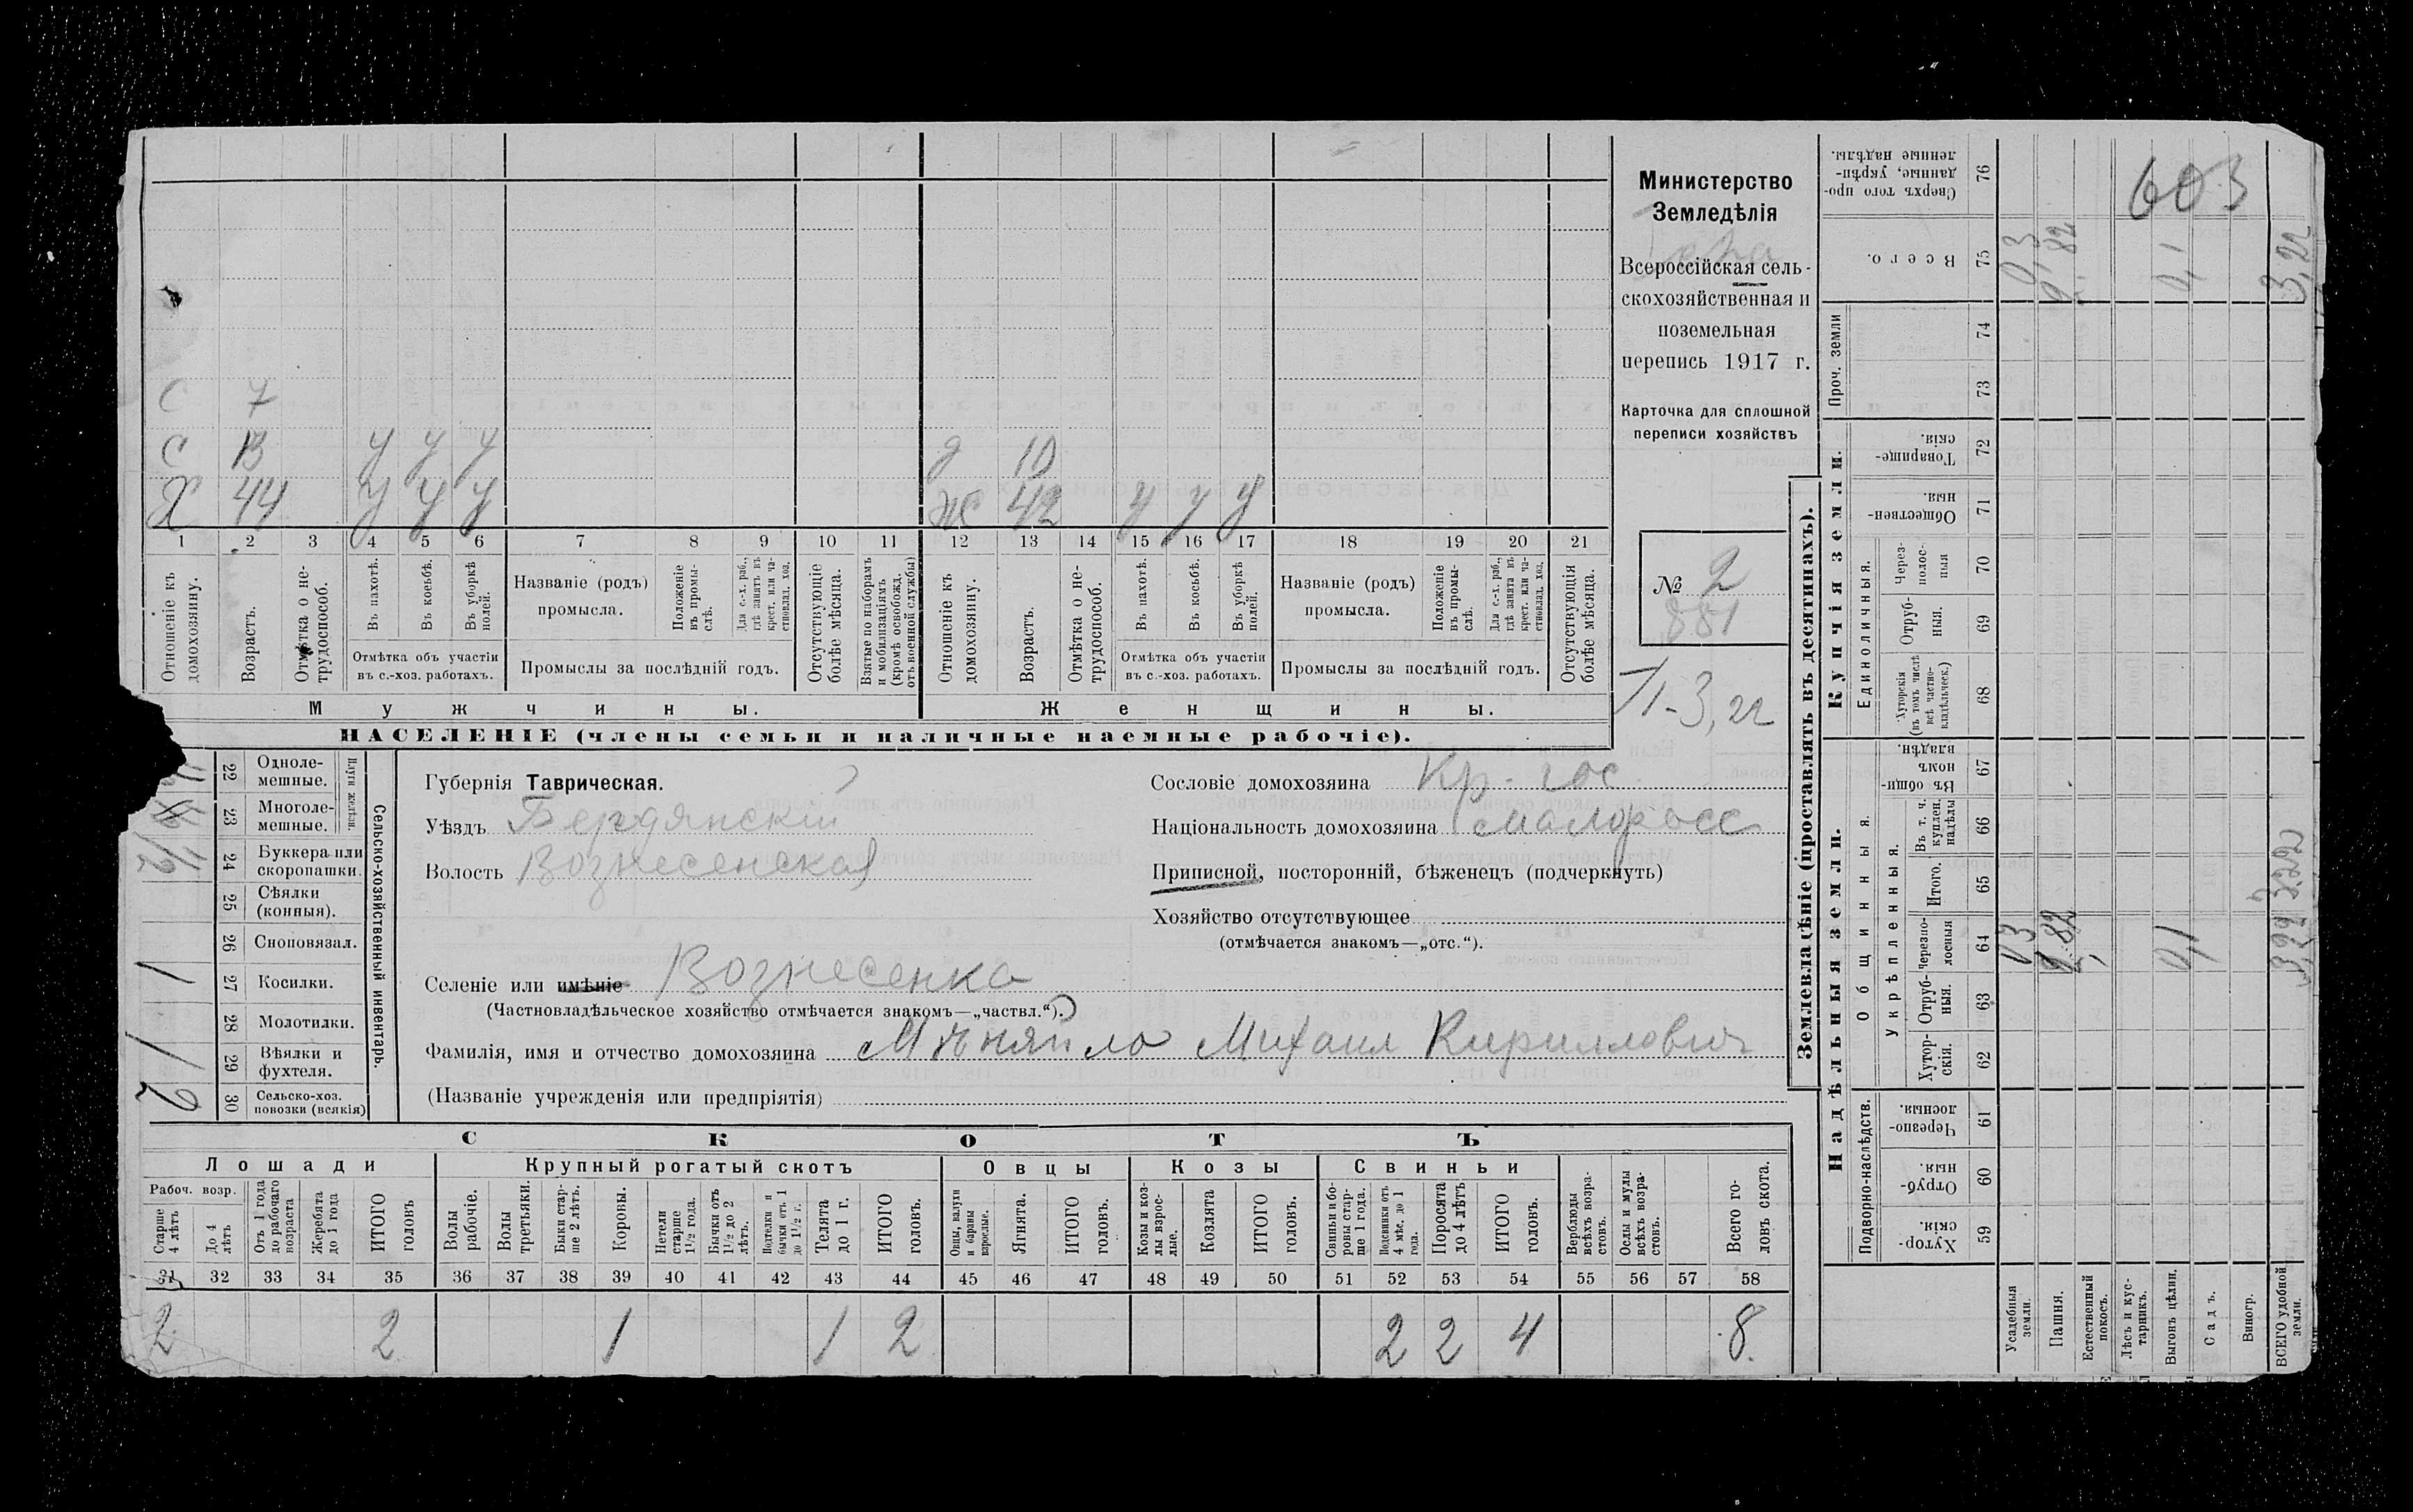 Министерство
Земледѣлія
Всероссійская сель-
скохозяйственная и
поземельная
перепись 1917 г.
Карточка для сплошной
переписи хозяйствъ
№ 2
881
3,22
603
С 7
С 13 У У У
Х 44 У У У
д 10
Ж 42 У У У
1 2 3 4 5 6 7 8 9 10 11 12 13 14 15 16 17 18 19 20 21
Отношеніе къ домохозяину.
Возрастъ.
Отмѣтка о не-трудоспособ.
Въ пахотѣ.
Въ косьбѣ.
Въ уборкѣ полей.
Отмѣтка объ участіи
въ с.-хоз. работахъ.
Названіе (родъ)
промысла.
Положеніе въ промы-слѣ.
Для с.-х. раб., гдѣ занятъ въ крест. или ча-стновлад. хоз.
Промыслы за послѣдній годъ.
Отсутствующіе болѣе мѣсяца.
Взятые по наборамъ и мобилизаціямъ (кромѣ освобожд. отъ военной службы)
Отношеніе къ домохозяину.
Возрастъ.
Отмѣтка о не-трудоспособ.
Въ пахотѣ.
Въ косьбѣ.
Въ уборкѣ полей.
Отмѣтка объ участіи
въ с.-хоз. работахъ.
Названіе (родъ)
промысла.
Положеніе въ промы-слѣ.
Для с.-х. раб., гдѣ занята въ крест. или ча-стновлад. хоз.
Промыслы за послѣдній годъ.
Отсутствующія болѣе мѣсяца.
Мужчины.
Женщины.
НАСЕЛЕНІЕ (члены семьи и наличные наемные рабочіе).
Губернія Таврическая.
Уѣздъ Бердянскій
Волость Вознесенская
Селеніе или имѣніе Вознесенка
(Частновладѣльческое хозяйство отмѣчается знакомъ—„частвл.“).
Фамилія, имя и отчество домохозяина Мѣняйло Михаил Кириллович
(Названіе учрежденія или предпріятія)
Сословіе домохозяина Кр-гос
Національность домохозяина малоросс
Приписной, посторонній, бѣженецъ (подчеркнуть)
Хозяйство отсутствующее
(отмѣчается знакомъ—„отс.“).
Сельско-хозяйственный инвентарь.
Плуги желѣзн.
22 Одноле-мешные.
23 Многоле-мешные.
24 Буккера или скоропашки.
25 Сѣялки (конныя).
26 Сноповязал.
27 Косилки. 1
28 Молотилки.
29 Вѣялки и фухтеля. 1
30 Сельско-хоз. повозки (всякія) 2
СКОТЪ
Лошади
Рабоч. возр.
Старше 4 лѣтъ
До 4 лѣтъ
Отъ 1 года до рабочаго возраста
Жеребята до 1 года
ИТОГО головъ
Крупный рогатый скотъ
Волы рабочіе.
Волы третьяки.
Быки стар-ше 2 лѣтъ.
Коровы.
Нетели старше 1½ года.
Бычки отъ 1½ до 2 лѣтъ.
Подтелки и бычки отъ 1 до 1½ г.
Телята до 1 г.
ИТОГО головъ.
Овцы
Овцы, валухи и бараны взрослые.
Ягнята.
ИТОГО головъ.
Козы
Козы и коз-лы взрос-лые.
Козлята
ИТОГО головъ.
Свиньи
Свиньи и бо-ровы стар-ше 1 года.
Подсвинки отъ 4 мѣс. до 1 года.
Поросята до 4 лѣтъ
ИТОГО головъ.
Верблюды всѣхъ возра-стовъ.
Ослы и мулы всѣхъ возра-стовъ.
Всего го-ловъ скота.
31 32 33 34 35 36 37 38 39 40 41 42 43 44 45 46 47 48 49 50 51 52 53 54 55 56 57 58
2 2 1 1 2 2 2 4 8
Землевладѣніе (проставлять въ десятинахъ).
Купчія земли.
Надѣльныя земли.
Сверхъ того про-данные, укрѣп-ленные надѣлы. 76
Всего. 75
Проч. земли 74 73
Товарище-скія. 72
Обществен-ныя. 71
Единоличныя.
Через-полос-ныя 70
Отруб-ныя. 69
Хуторскія (въ томъ числѣ всѣ частно-владѣльческ.) 68
Общинныя.
Въ общи-номъ владѣн. 67
Укрѣпленныя.
Въ т. ч. куплен. надѣлы 66
Итого. 65
Черезпо-лосныя 64
Отруб-ныя. 63
Хутор-скія. 62
Подворно-наслѣдств.
Черезпо-лосныя. 61
Отруб-ныя. 60
Хутор-скія. 59
Усадебныя земли. 0,3 0,3
Пашня. 2,82 2,82
Естественный покосъ.
Лѣсъ и кус-тарникъ.
Выгонъ цѣлин. 0,1 0,1
Садъ.
Виногр.
ВСЕГО удобной земли. 3,22 3,22 3,22